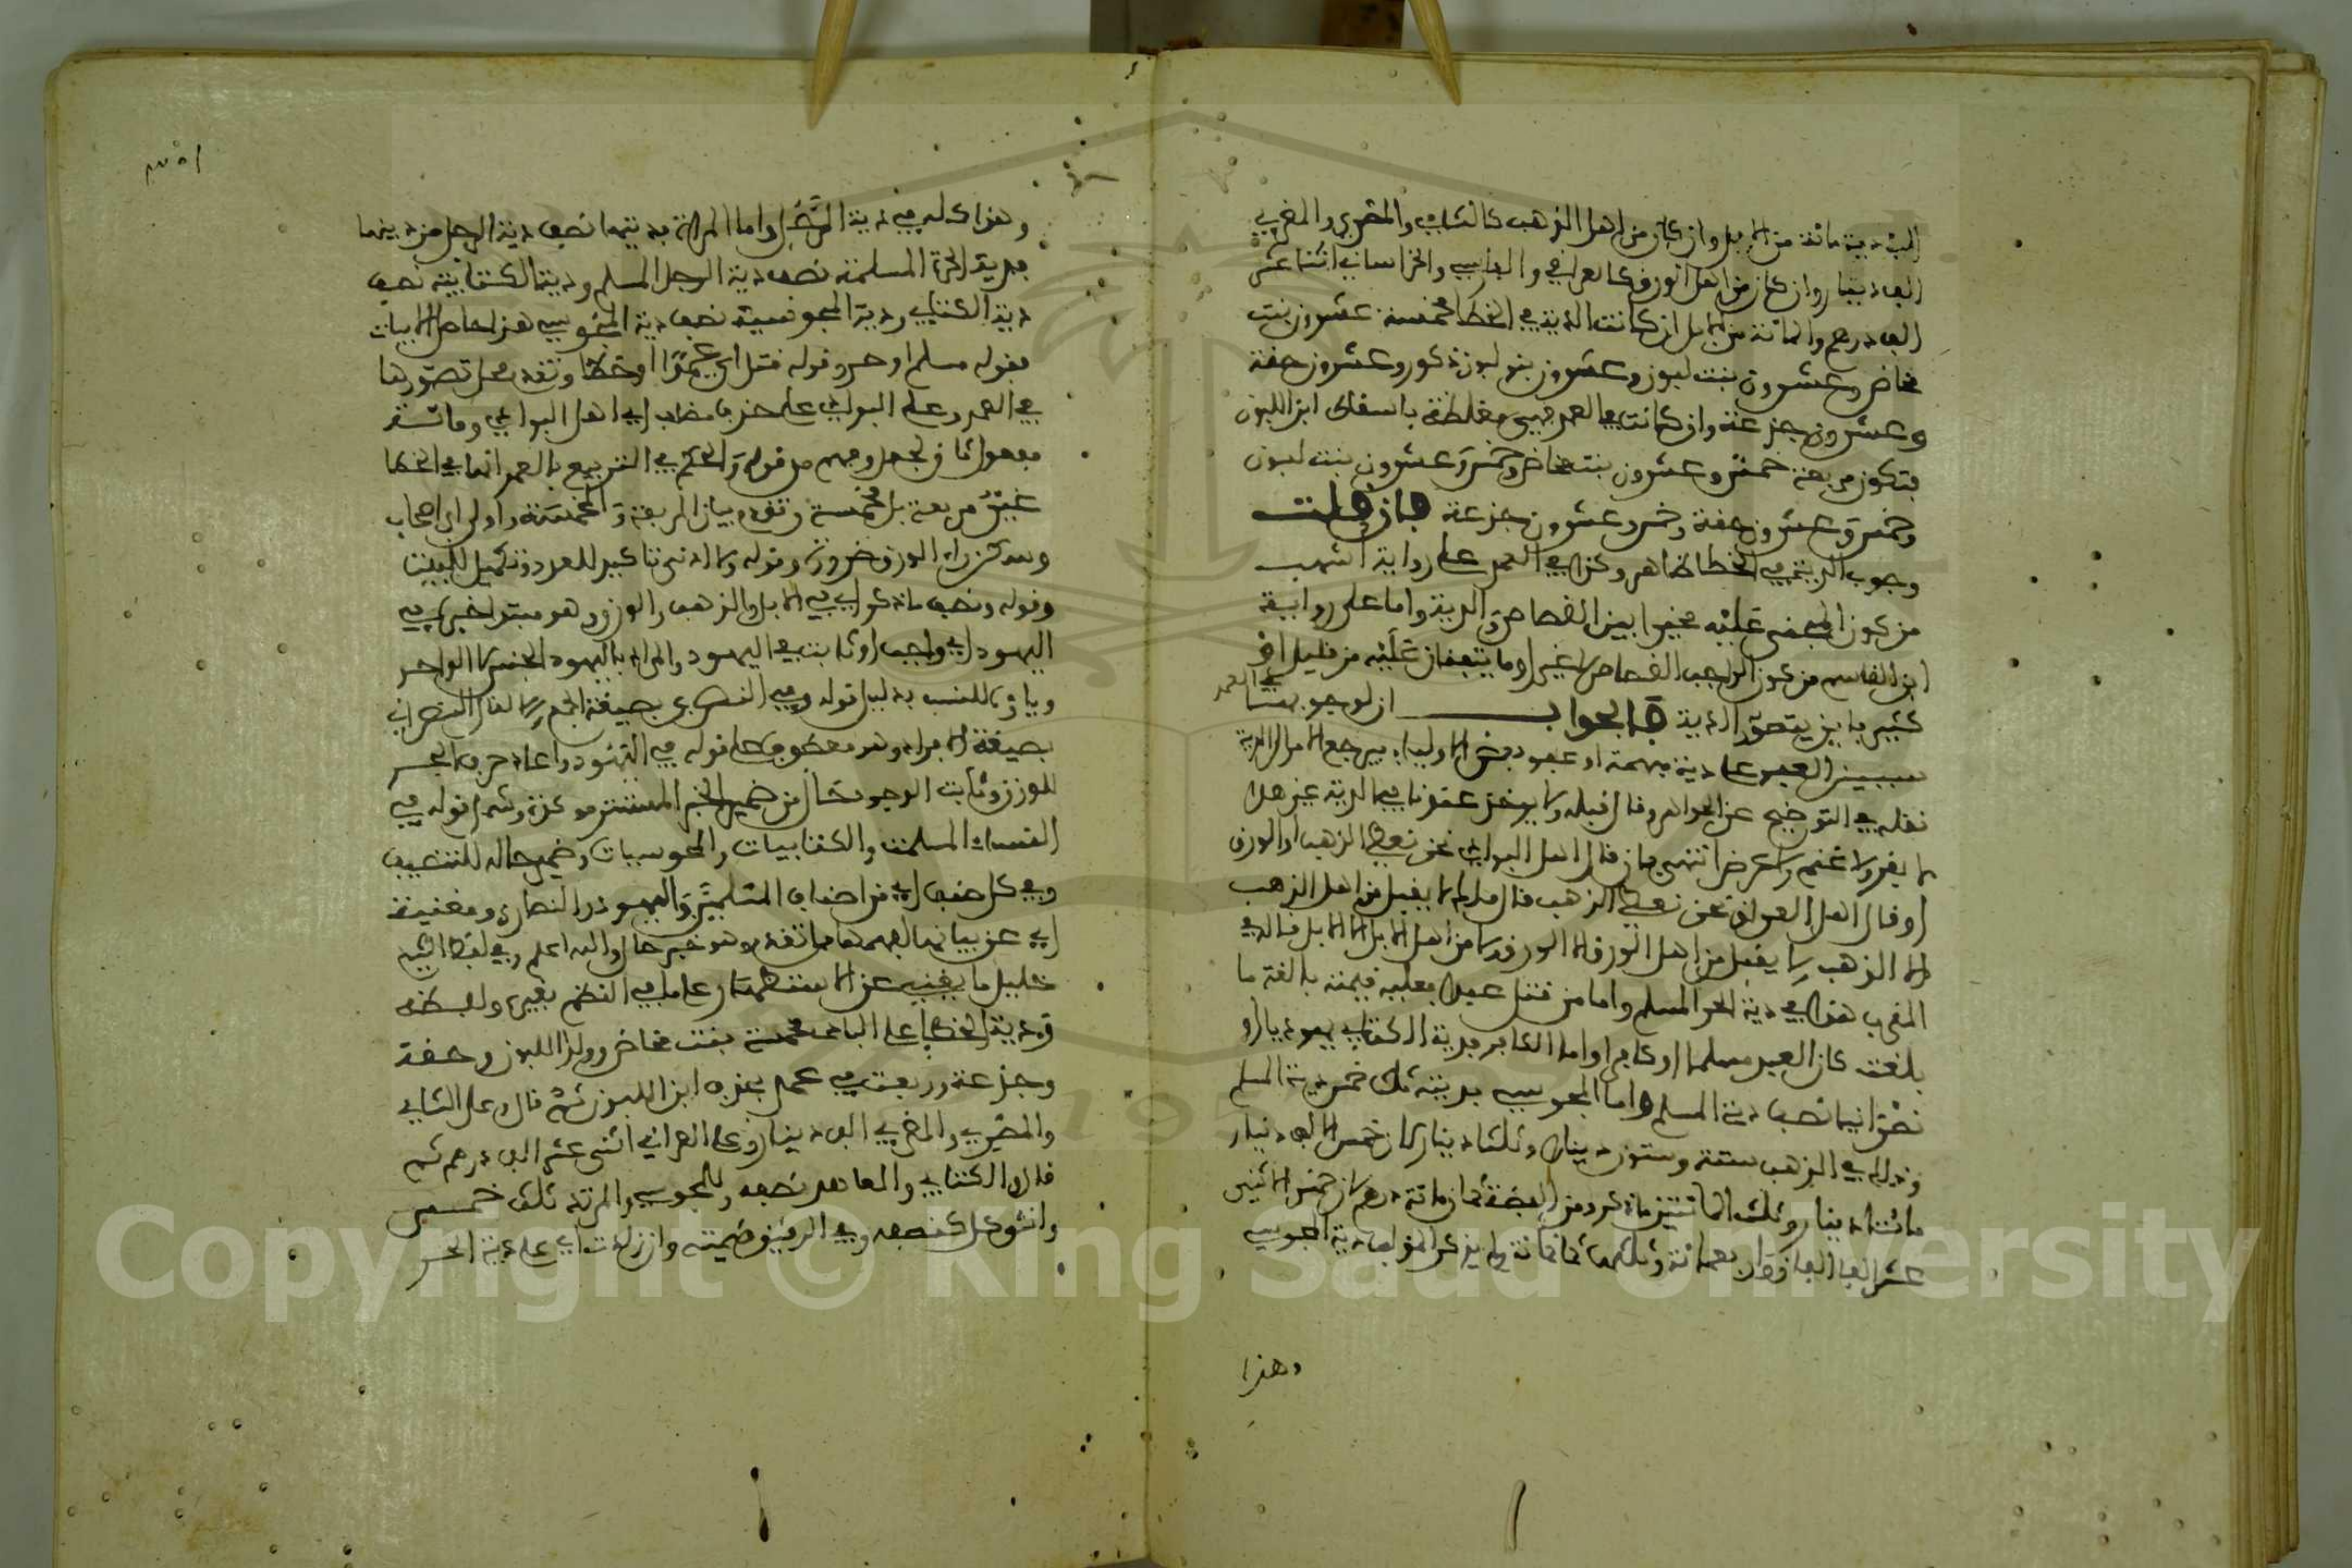 البادية مائة من الإبل وإن كان من أهل الذهب كالشامي والمصري والمغربي
ألف دينار وإن كان من أهل الورق كالعراقي والفارسي والخراساني اثنا عشر
ألف درهم والمائة من الإبل إن كانت الدية في الخطإ مخمسة عشرون بنت
مخاض وعشرون بنت لبون وعشرون بنو لبون ذكور وعشرون حقة
وعشرون جذعة وإن كانت في العمد فهي مغلظة بإسقاط ابن اللبون
فتكون مربعة خمس وعشرون بنت مخاض وخمس وعشرون بنت لبون
وخمس وعشرون حقة وخمس وعشرون جذعة فإن قلت
وجوب الدية في الخطإ ظاهر وكذا في العمد على رواية أشهب
من كون المجني عليه مخيرا بين القصاص والدية وأما على رواية
ابن القاسم من كون الواجب القصاص لا غير أو ما يتفقان عليه من قليل أو
كثير فأين يتصور الدية فالجواب أن لوجوبها في العمد
سببين العفو على دية مبهمة أو عفو بعض الأولياء فيرجع الأمر إلى الدية
نقله في التوضيح عن الجواهر وقال قبله ولا يؤخذ عندنا في الدية عن هذا
لا بقر ولا غنم ولا عرض انتهى فإن قال أهل البوادي نحن نعطي الذهب أو الورق
أو قال أهل العراق نحن نعطي الذهب قال مالك لا يقبل من أهل الذهب
إلا الذهب ولا يقبل من أهل الورق إلا الورق ولا من أهل الإبل إلا الإبل قال في
المغرب هذا في دية الحر المسلم وأما من قتل عبدا فعليه قيمته بالغة ما
بلغت كان العبد مسلما أو كافرا وأما الكافر فدية الكتابي يهوديا أو
نصرانيا نصف دية المسلم وأما المجوسي فديته ثلث خمس دية المسلم
وذلك في الذهب ستة وستون دينارا وثلثا دينار لأن خمس الألف دينار
مائتا دينار وثلث المائتين ما ذكر ومن الفضة ثمان مائة درهم لأن خمس الاثني
عشر ألفا ألفان وأربعمائة وثلثها ثمانمائة ولم يذكر المؤلف دية المجوسي
وهذا
وهذا كله في دية الرجل وأما المرأة فديتها نصف دية الرجل من دينها
فدية الحرة المسلمة نصف دية الرجل المسلم ودية الكتابية نصف
دية الكتابي ودية المجوسية نصف دية المجوسي هذا حاصل الأبيات
فقوله مسلم أو حر وقوله قتل أي عمدا أو خطأ وتقدم محل تصورها
في العمد وعلى البوادي على حذف مضاف أي أهل البوادي ومائة
مفعول ثان لجعل وفهم من قوله والحكم في التربيع بالعمد أنها في الخطإ
غير مربعة بل مخمسة وتقدم بيان المربعة والمخمسة
وسكن راء الورق ضرورة وقوله ولا أدنى تأكيد للعدد وتكميل للبيت
وقوله ونصف ما ذكر أي في الإبل والذهب والورق وهو مبتدأ خبره في
اليهود أي واجب أو ثابت في اليهود والمراد باليهود الجنس لا الواحد
وياؤه للنسب بدليل قوله وفي النصارى بصيغة الجمع
بصيغة الإفراد وهو معطوف على قوله في اليهود وأعاد حرف الجر
للوزن وثابت الوجود حال من ضمير الخبر المستتر وشمل قوله في
النساء المسلمات والكتابيات والمجوسيات وضمير حاله للتنصيف
وفي كل صنف أي من أصناف المسلمين واليهود والنصارى
أي عن بيانها لفهمها مما تقدم وهو خبر حال والله أعلم وفي لفظ الشيخ
خليل ما يغني عن الاستظهار على ما في النظم بغيره ولفظه
ودية الخطإ على البادي مخمسة بنت مخاض وولد اللبون وحقة
وجذعة وربعت في عمد بحذف ابن اللبون ثم قال وعلى الشامي
والمصري والمغربي ألف دينار وعلى العراقي اثني عشر ألف درهم ثم
قال والكتابي والمعاهد نصفه وللمجوسي والمرتد ثلث خمس
وأنثى كل كنصفه وفي الرقيق قيمته وإن زادت أي على دية الحر